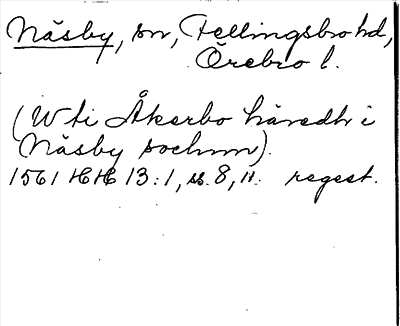 Näsby, sn, Fellingsbro hd,
Örebro l.
(Wti Åkerbo häredh i
Näsby sochnn).
1561 HH 13:1, s. 8, 11. regest.